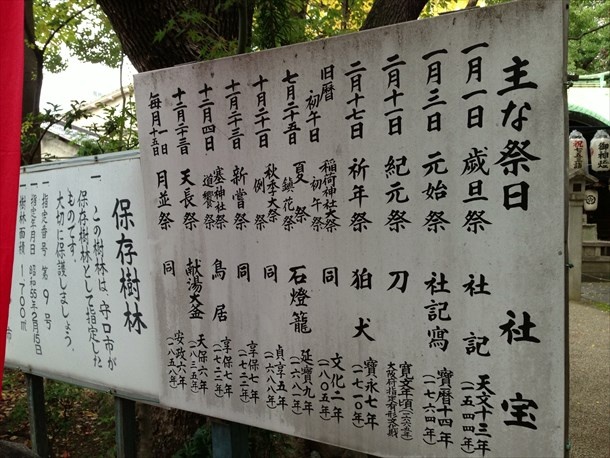 主な祭日 社宝
一月一日 歳旦祭 社記 天文十三年(一五四四年)
一月三日 元始祭 社記寫 寶暦十四年(一七六四年)
二月十一日 紀元祭 刀 寛文年頃
二月十七日 祈年祭 狛犬 寶永七年(一七一〇年)
旧暦初午日 稲荷神社大祭 初午祭 同 文化二年(一八〇五年)
七月二十五日 夏祭 鎮花祭 石燈籠 延寶九年(一六八一年)
十月二十一日 秋季大祭 例祭 同 貞享五年(一六八八年)
十一月二十三日 新嘗祭 同 享保七年(一七二二年)
十二月四日 塞神社祭 道饗祭 鳥居 享保七年(一七二二年)
十二月二十三日 天長祭 献湯大釜 天保六年(一八三五年)
毎月一日十五日 月並祭 同 安政六年(一八五八年)
保存樹林
一 この樹林は、守口市が
保存樹林として指定した
ものです。
大切に保護しましょう。
一 指定番号 第9号
一 指定年月日 昭和55年2月15日
一 樹林面積 1700㎡
市
御神燈
祝七五三